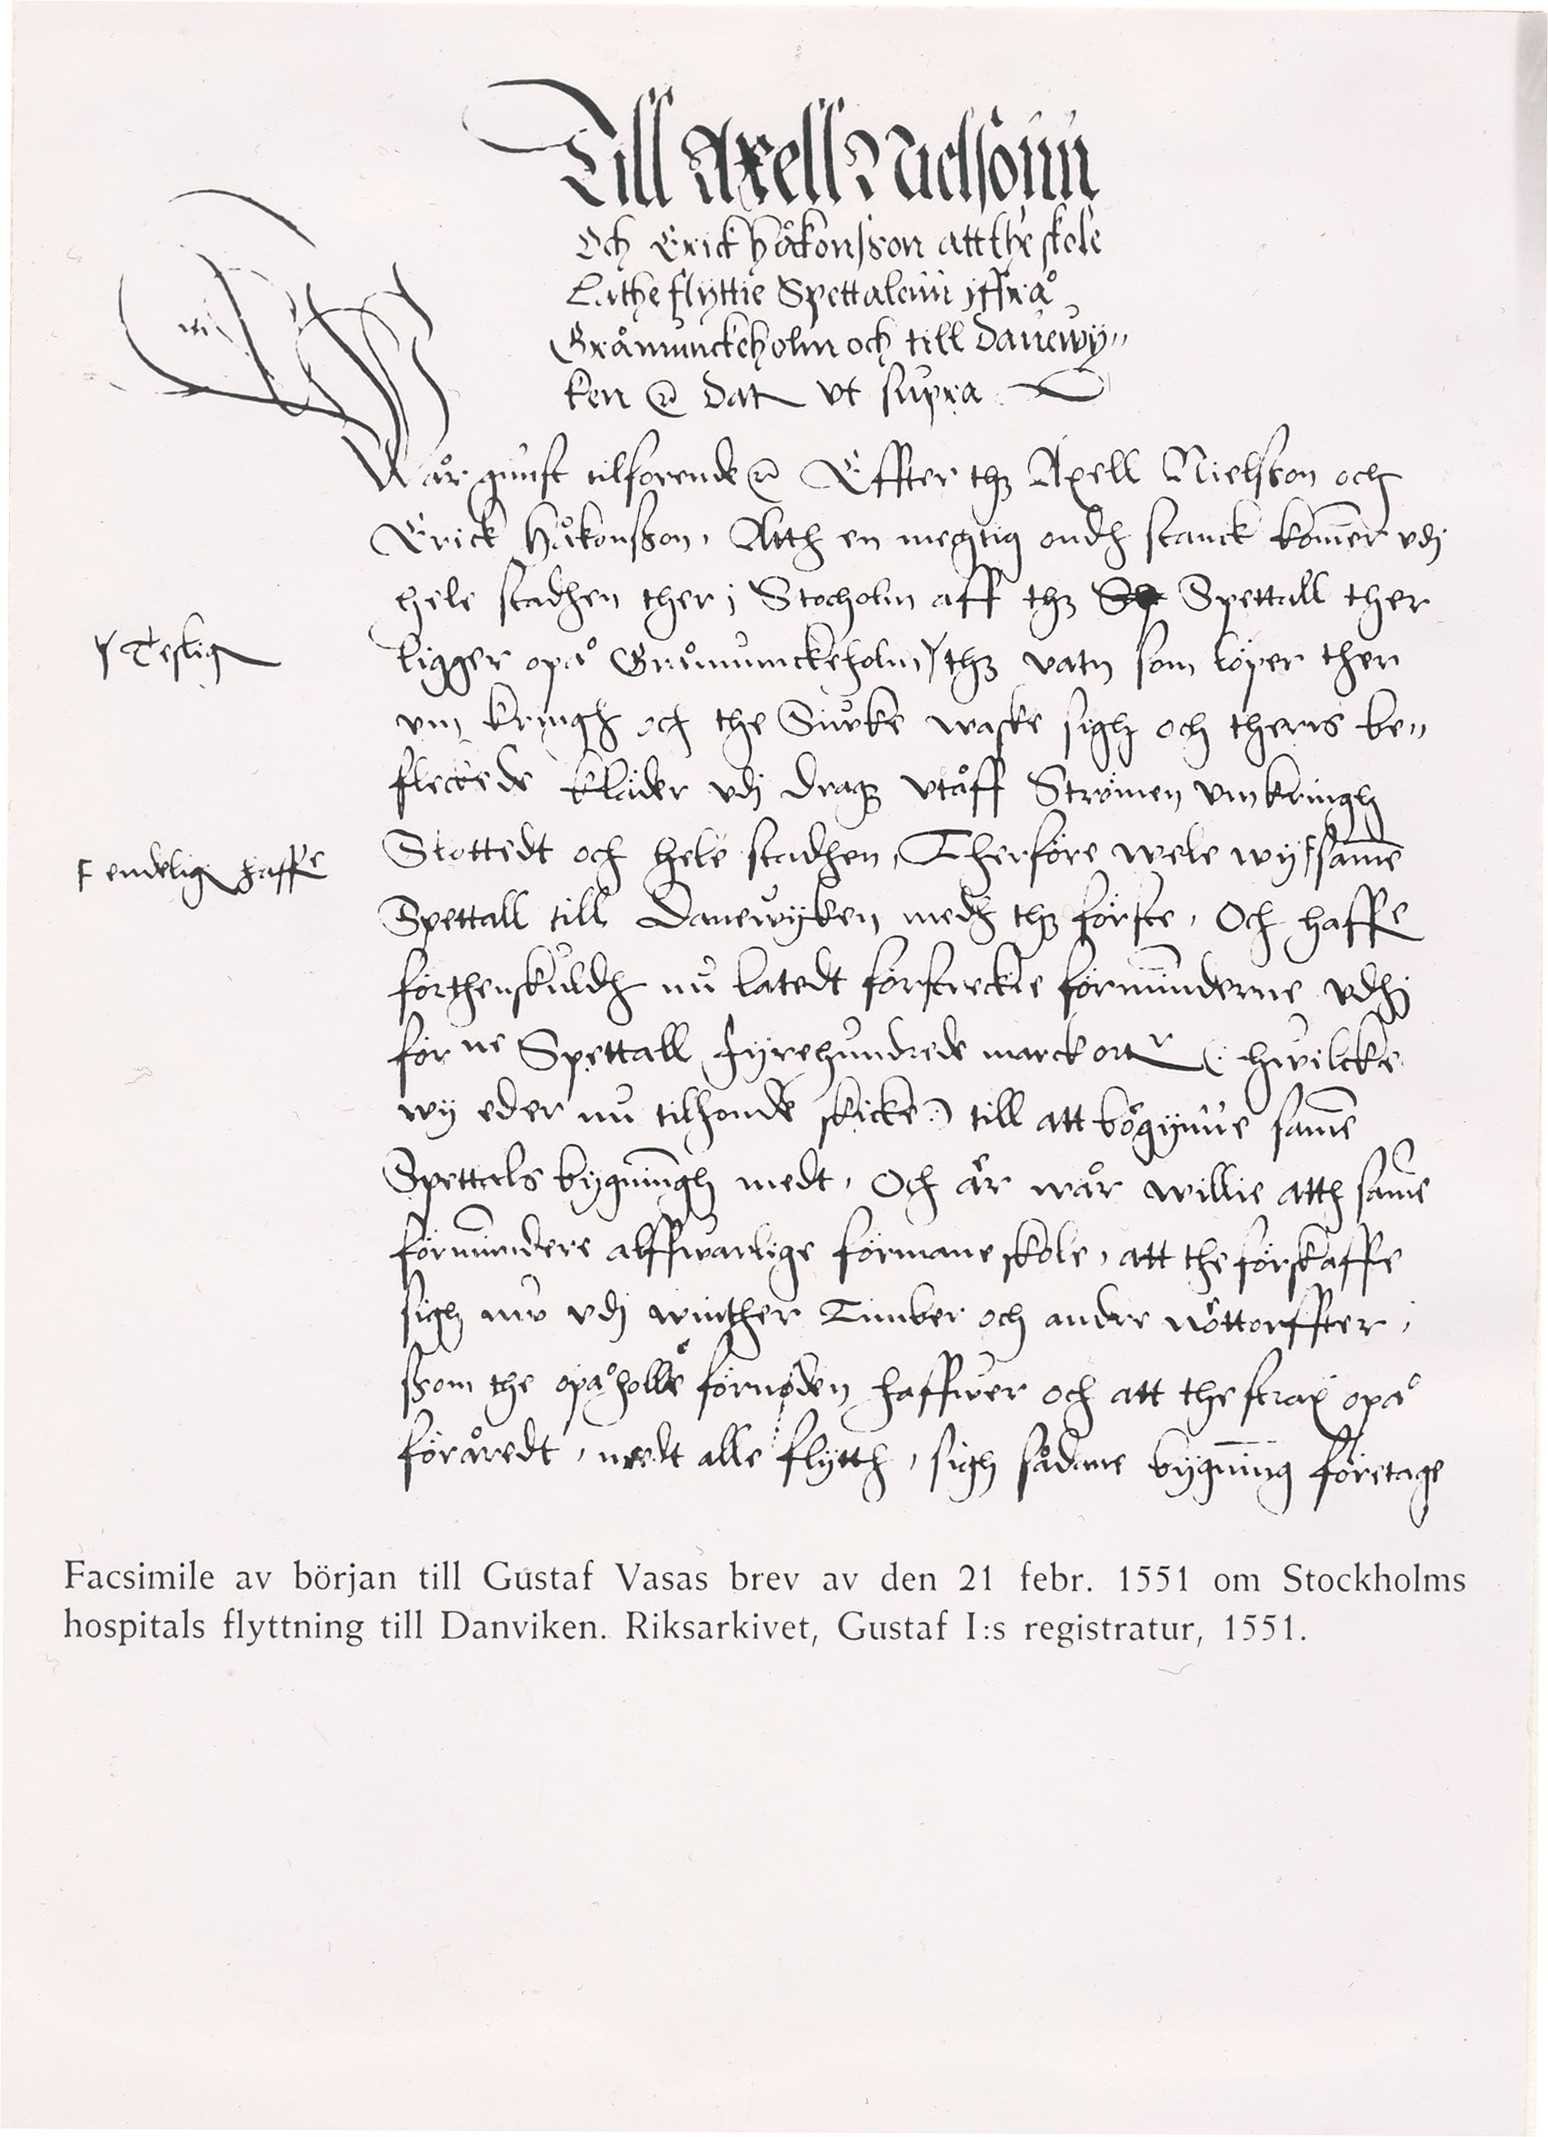 Till Axell Nielsonn
Och Erick Håkonsson att the skole
Lathe flyttie Spettalenn iffrå
Gråmunckeholm och till Danewy"
ken Dat vt supra
Wår gunst tilforende Effter thz Axell Nielsson och
Erick Håkonsson, Atth en megtig ondh stanck kommer vdj
hele stadhen ther j Stocholm aff thz Spettall ther
Y Teslig
ligger opå Gråmunckeholm Y thz vatn som löper ther
vm kringh och the Siwke waske sigh och theris be"
fleckede kläder vdj dragz vtåff Strömen vmkringh
Slottedt och hele stadhen, Therföre wele wy F same
F endelig haffe
Spettall till Danewyken medh thz förste, Och haffe
förthenskuldh nu latedt förstreckie förmunderne vdhj
för ne Spettall fyrehundrede marck ortr (: hwilcke
wy eder nu tilhonde skicke :) till att bögynne same
Spettals bygningh medt, Och är wår willie atth same
förmundere alffwarlige förmane skole, att the förskaffe
sigh nw vdj winther Timber och andre nöttorffter,
som the opå holle förnöden haffwer och att the strax opå
föråredt, medt alle flytth, sigh sådane bygning företage
Facsimile av början till Gustaf Vasas brev av den 21 febr. 1551 om Stockholms
hospitals flyttning till Danviken. Riksarkivet, Gustaf I:s registratur, 1551.